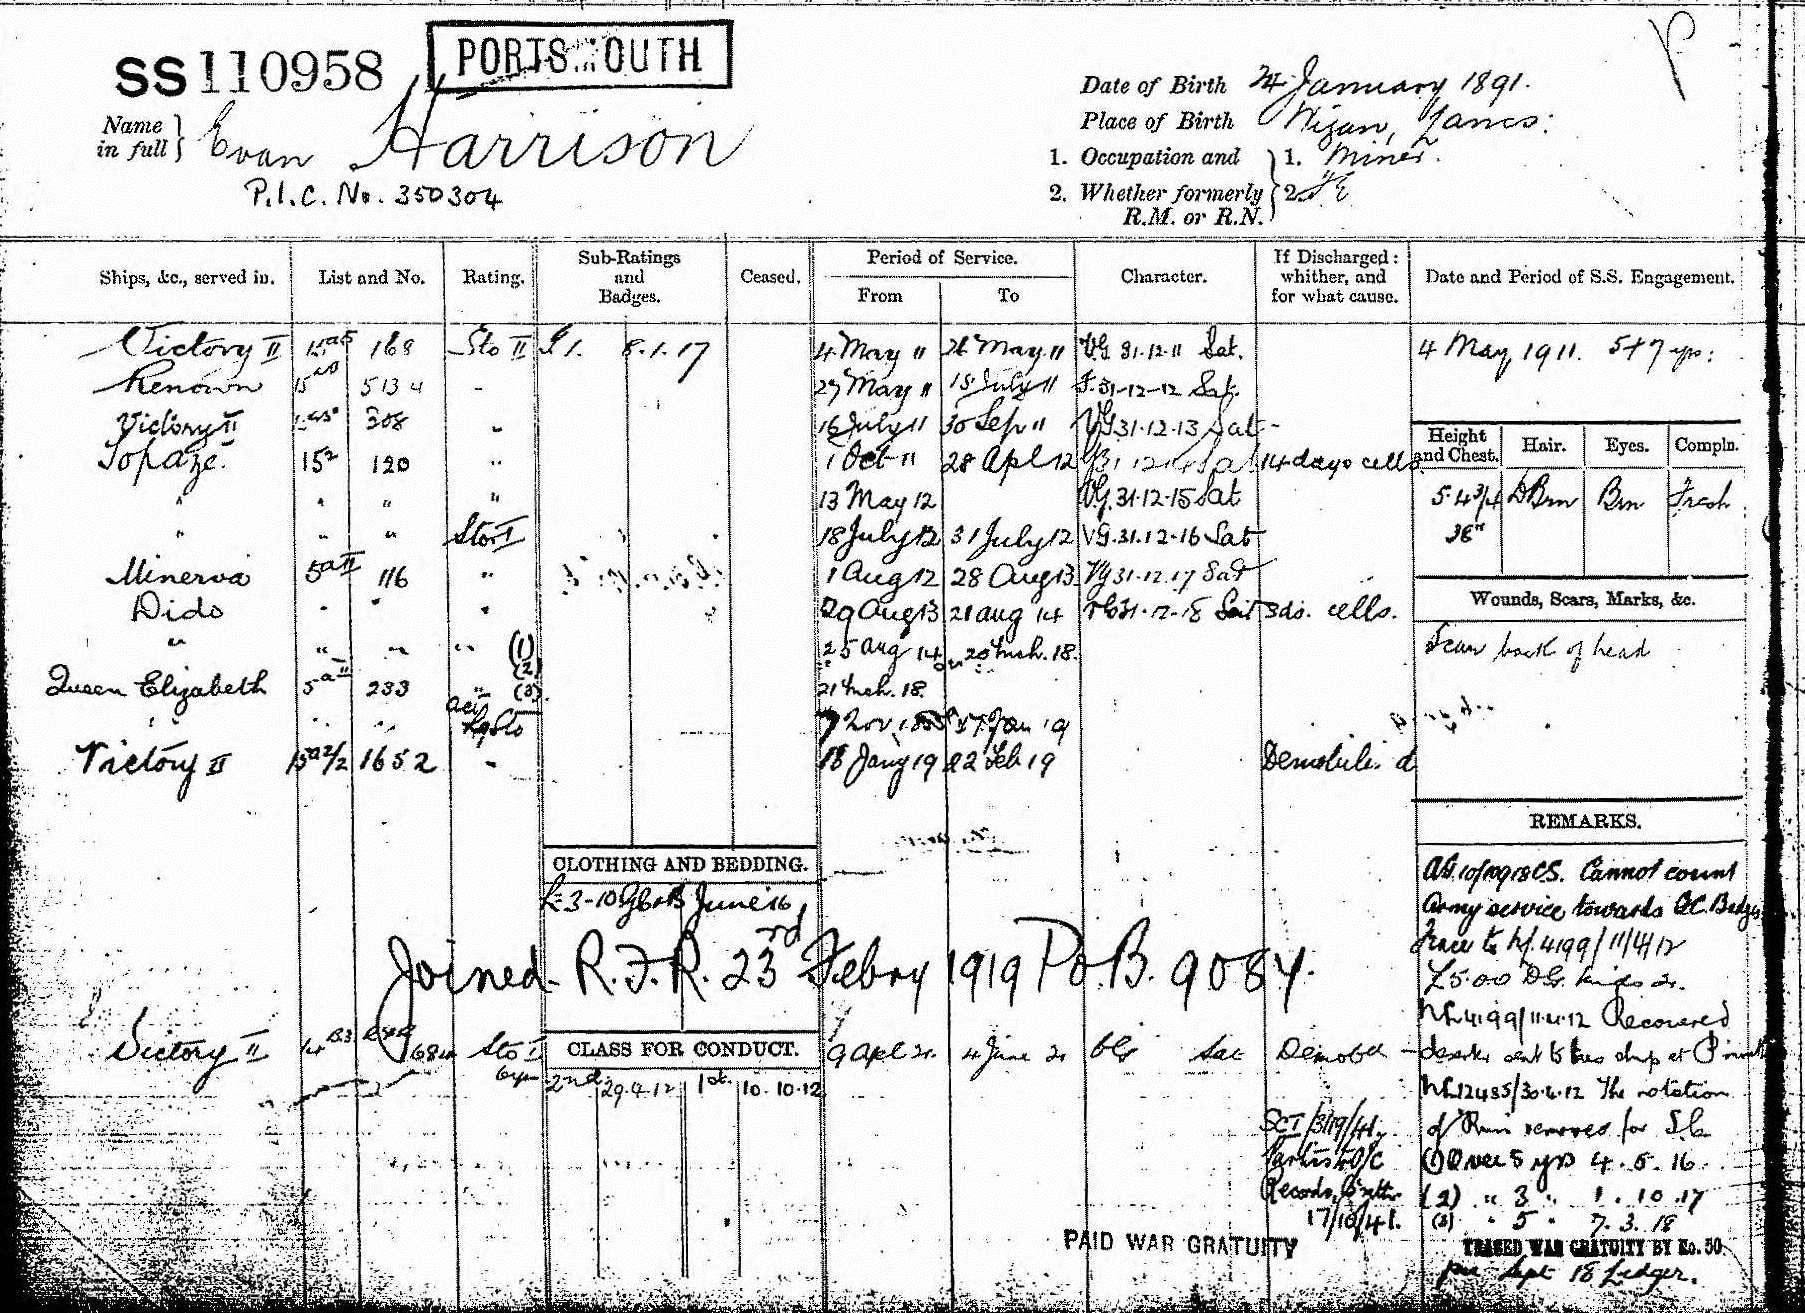 SS 110958 PORTSMOUTH
Name in full } Evan Harrison
P.I.C. No. 350304
Date of Birth 24 January 1891.
Place of Birth Wigan, Lancs:
1. Occupation and } 1. Miner.
2. Whether formerly R.M. or R.N. } 2.
Ships, &c., served in. List and No. Rating. Sub-Ratings and Badges. Ceased. Period of Service. From To Character. If Discharged: whither, and for what cause. Date and Period of S.S. Engagement.
Victory II 15 168 Sto II 8.1.17 4 May 11 26 May 11 VG 31.12.11 Sat. 4 May, 1911. 5+7 yrs:
Renown 15 513 - 27 May 11 15 July 11 F.31-12-12 Sat.
Victory II 308 " 16 July 11 30 Sep 11 VG 31.12.13 Sat-
Topaze. 15² 120 " 1 Oct 11 28 Apl 12 Sat 14 days cells.
" " " " 13 May 12 VG.31.12.15 Sat
" " " Sto I 18 July 12 31 July 12 VG.31.12.16 Sat
Minerva 5 116 " 1 Aug 12 28 Aug 13 VG 31.12.17 Sat
Dido " " " 29 Aug 13 21 Aug 14 VG 31.12.18 Sat 3 ds. cells.
" " " " (1) 25 Aug 14 20 Mch. 18.
(2)
Queen Elizabeth 5 233 " (3) 21 Mch. 18.
" " " Actg Lg Sto 7 Nov 18 17 Jan 19
Victory II 15 1652 - 18 Jany 19 22 Feb 19 Demobilis d
Height and Chest. Hair. Eyes. Compln.
5.4¾ D Brn Brn Fresh
36"
Wounds, Scars, Marks, &c.
Scar back of head
CLOTHING AND BEDDING.
June 16
Joined R.F.R. 23rd Febry 1919 Po.B. 9084.
Victory II 684 Sto I 9 Apl 21. 4 June 21 VG Sat Demobd
CLASS FOR CONDUCT.
2nd 29.4.12 1st. 10.10.12
REMARKS.
Cannot count
Army service towards G.C. Badges
Trace to NL 4199/11/4/12
NL 4199/11.4.12 Recovered
deserter sent to this ship at
NL12485/30.4.12 The notation
of Run removed for S.C.
(1) Over 5 yrs 4.5.16
(2) " 3 " 1.10.17
(3) " 5 " 7.3.18
TRACED WAR GRATUITY BY No. 50
Sept 18 Ledger.
Records,
17/10/41.
PAID WAR GRATUITY